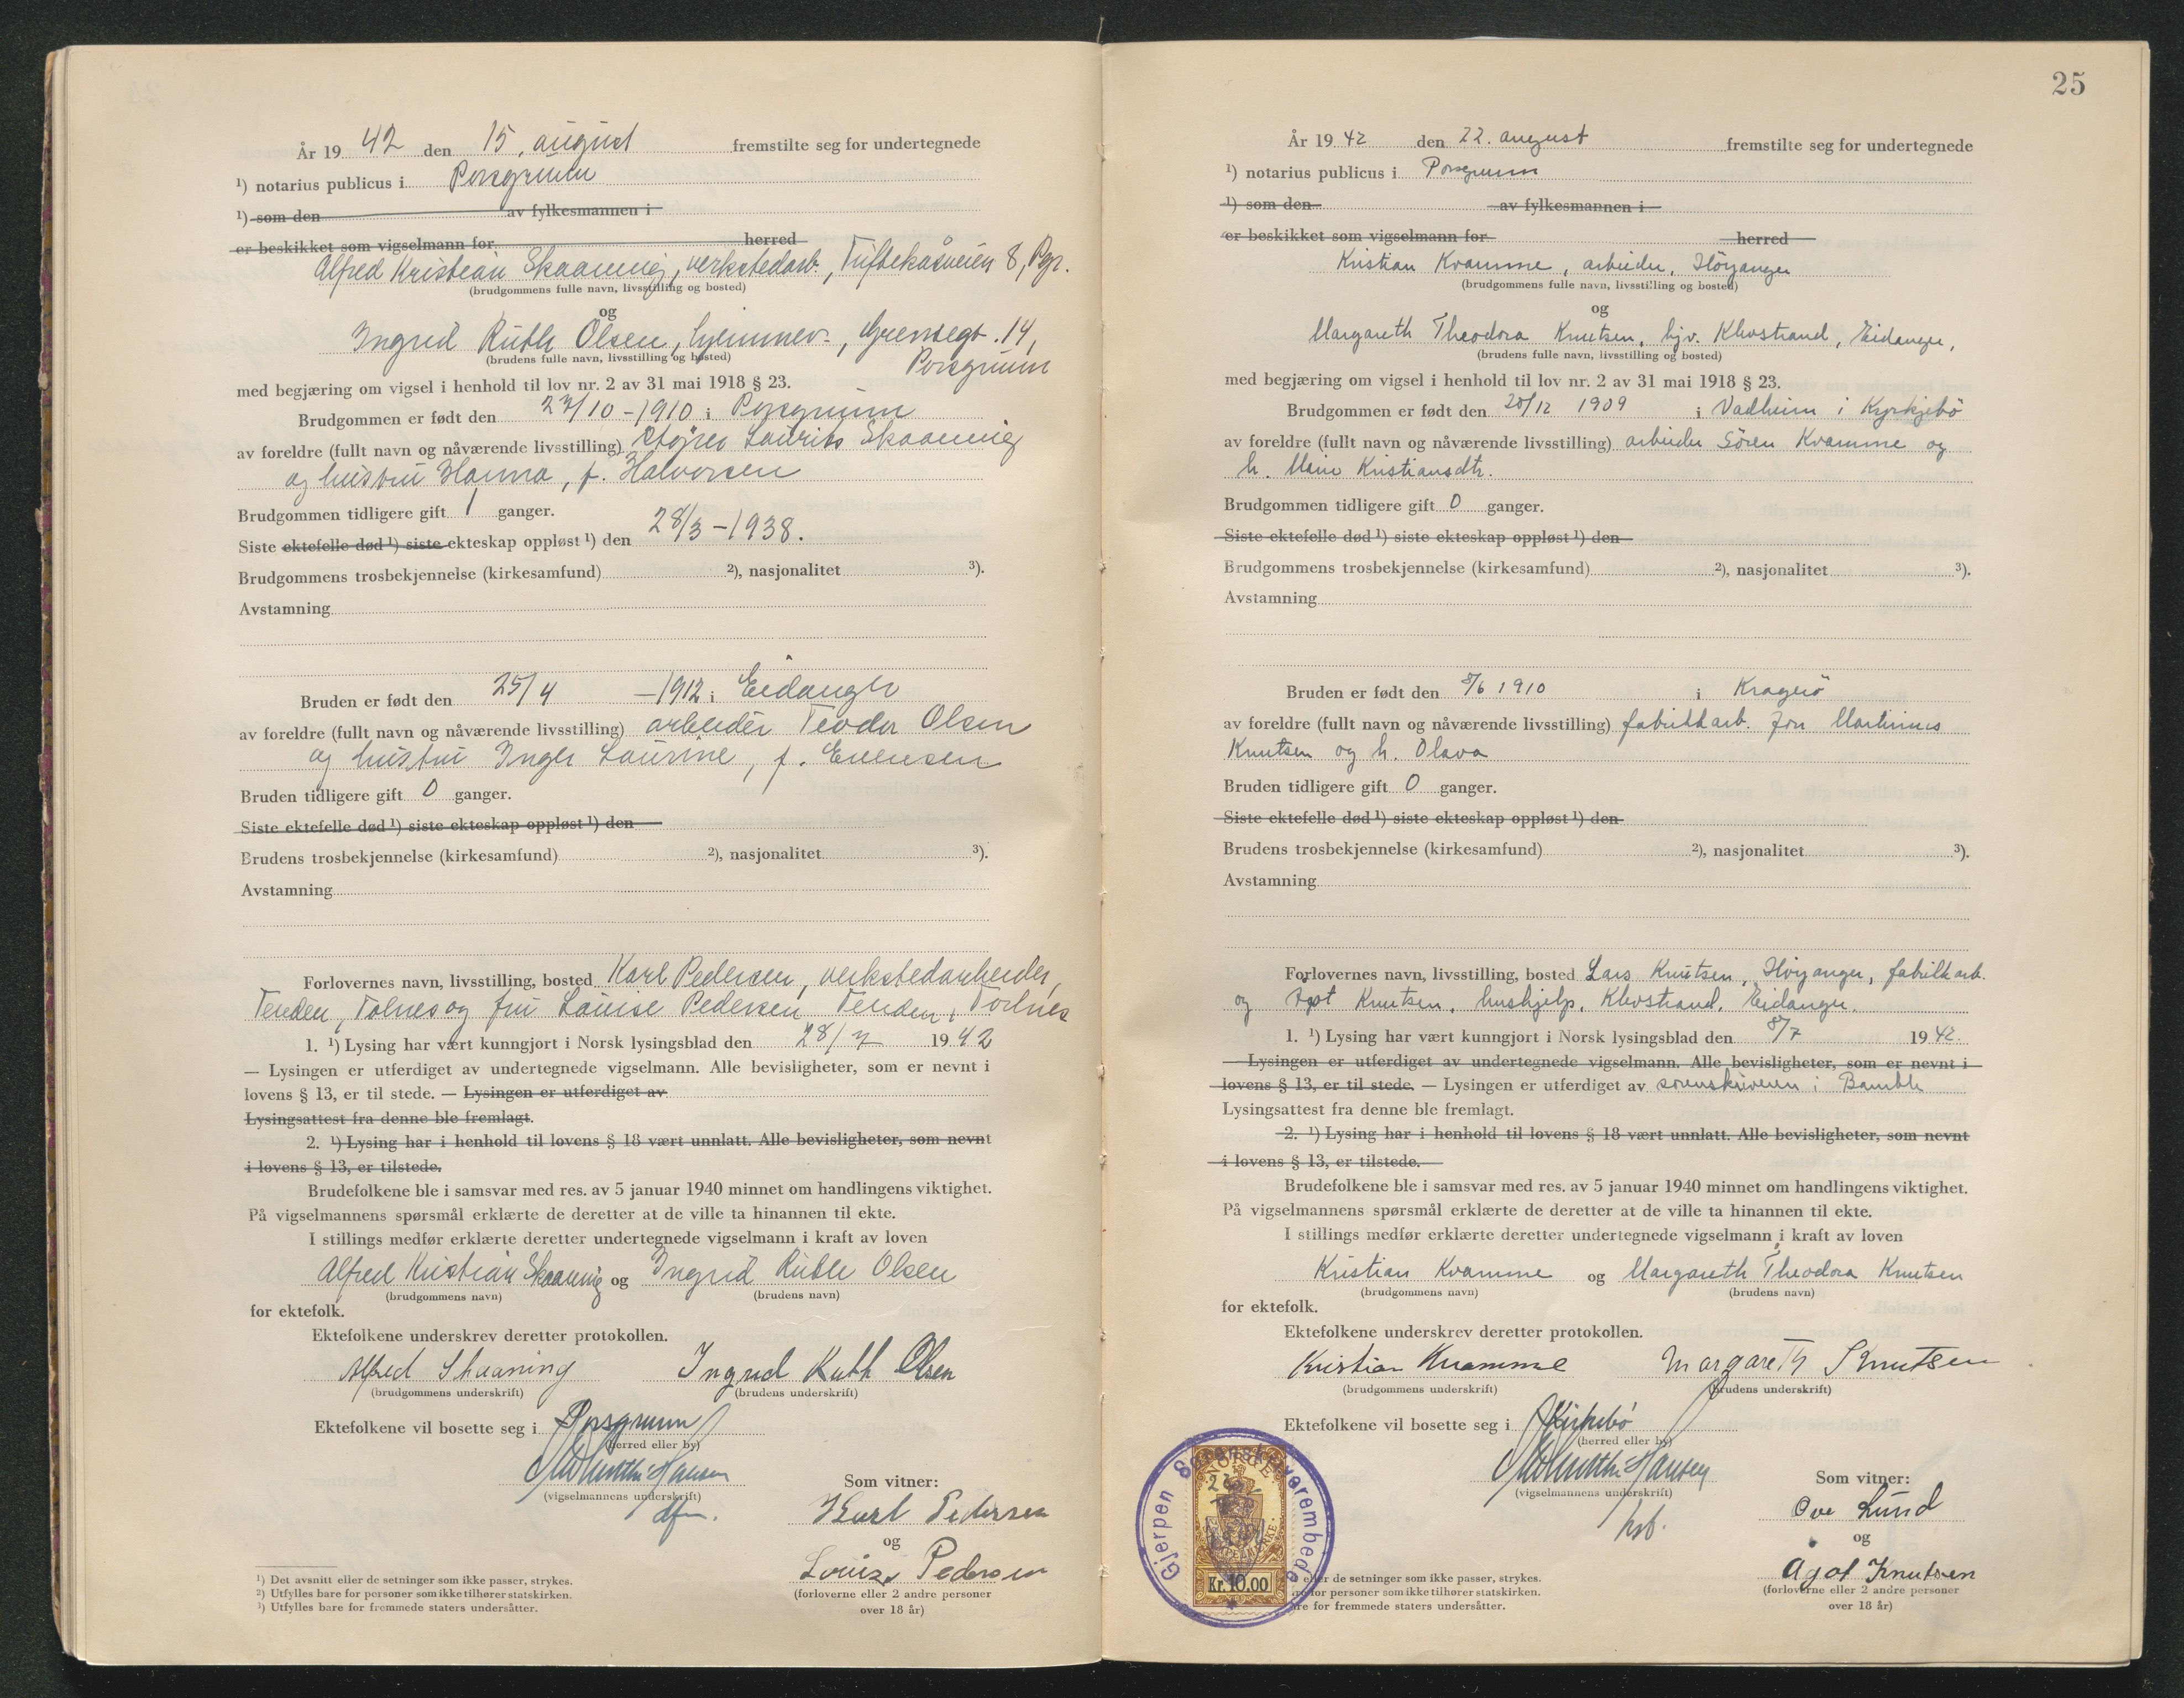 År 19 42 den 15. august fremstilte seg for undertegnede
¹) notarius publicus i Porsgrunn
¹) som den av fylkesmannen i
er beskikket som vigselmann for herred
Alfred Kristian Skaanning, verkstedarb., Tuftekåsveien 8, Pgr.
(brudgommens fulle navn, livsstilling og bosted)
og
Ingrid Ruth Olsen, hjemmev., Grensegt. 14,
(brudens fulle navn, livsstilling og bosted)
Porsgrunn
med begjæring om vigsel i henhold til lov nr. 2 av 31 mai 1918 § 23.
Brudgommen er født den 27/10 - 1910 i Porsgrunn
av foreldre (fullt navn og nåværende livsstilling) Laurits Skaanning
og hustru Hanna, f. Halvorsen
Brudgommen tidligere gift 1 ganger.
Siste ektefelle død ¹) siste ekteskap oppløst ¹) den 28/3 - 1938.
Brudgommens trosbekjennelse (kirkesamfund) ²), nasjonalitet ³).
Avstamning
Bruden er født den 25/4 - 1912 i Eidanger
av foreldre (fullt navn og nåværende livsstilling) arbeider Teodor Olsen
og hustru Inger Laurine, f. Evensen
Bruden tidligere gift 0 ganger.
Siste ektefelle død ¹) siste ekteskap oppløst ¹) den
Brudens trosbekjennelse (kirkesamfund) ²), nasjonalitet ³).
Avstamning
Forlovernes navn, livsstilling, bosted Karl Pedersen, verkstedarbeider,
Tenden, Tolnes og fru Louise Pedersen Tenden, Tolnes
1. ¹) Lysing har vært kunngjort i Norsk lysingsblad den 28/7 19 42
— Lysingen er utferdiget av undertegnede vigselmann. Alle bevisligheter, som er nevnt i
lovens § 13, er til stede. — Lysingen er utferdiget av
Lysingsattest fra denne ble fremlagt.
2. ¹) Lysing har i henhold til lovens § 18 vært unnlatt. Alle bevisligheter, som nevnt
i lovens § 13, er tilstede.
Brudefolkene ble i samsvar med res. av 5 januar 1940 minnet om handlingens viktighet.
På vigselmannens spørsmål erklærte de deretter at de ville ta hinannen til ekte.
I stillings medfør erklærte deretter undertegnede vigselmann i kraft av loven
Alfred Kristian Skaanning og Ingrid Ruth Olsen
(brudgommens navn) (brudens navn)
for ektefolk.
Ektefolkene underskrev deretter protokollen.
Alfred Skaaning Ingrid Ruth Olsen
(brudgommens underskrift) (brudens underskrift)
Ektefolkene vil bosette seg i Porsgrunn
(herred eller by)
Hansen
(vigselmannens underskrift)
Som vitner:
Karl Pedersen
og
Louise Pedersen
(forloverne eller 2 andre personer
over 18 år)
¹) Det avsnitt eller de setninger som ikke passer, strykes.
²) Utfylles bare for personer som ikke tilhører statskirken.
³) Utfylles bare for fremmede staters undersåtter.
25
År 19 42 den 22. august fremstilte seg for undertegnede
¹) notarius publicus i Porsgrunn
¹) som den av fylkesmannen i
er beskikket som vigselmann for herred
Kristian Kvamme, arbeider, Höyanger
(brudgommens fulle navn, livsstilling og bosted)
og
Margareth Theodora Knutsen, hjv. Klevstrand, Eidanger,
(brudens fulle navn, livsstilling og bosted)
med begjæring om vigsel i henhold til lov nr. 2 av 31 mai 1918 § 23.
Brudgommen er født den 20/12 1909 i Vadheim i Kyrkjebö
av foreldre (fullt navn og nåværende livsstilling) arbeider Sören Kvamme og
h. Marie Kristiansdtr.
Brudgommen tidligere gift 0 ganger.
Siste ektefelle død ¹) siste ekteskap oppløst ¹) den
Brudgommens trosbekjennelse (kirkesamfund) ²), nasjonalitet ³).
Avstamning
Bruden er født den 8/6 1910 i Kragerö
av foreldre (fullt navn og nåværende livsstilling) fabrikkarb. Jon Martinius
Knutsen og h. Olava
Bruden tidligere gift 0 ganger.
Siste ektefelle død ¹) siste ekteskap oppløst ¹) den
Brudens trosbekjennelse (kirkesamfund) ²), nasjonalitet ³).
Avstamning
Forlovernes navn, livsstilling, bosted Lars Knutsen, Höyanger, fabrikkarb.
og Agot Knutsen, hushjelp, Klevstrand, Eidanger.
1. ¹) Lysing har vært kunngjort i Norsk lysingsblad den 8/7 19 42.
— Lysingen er utferdiget av undertegnede vigselmann. Alle bevisligheter, som er nevnt i
lovens § 13, er til stede. — Lysingen er utferdiget av sorenskriveren i Bamble
Lysingsattest fra denne ble fremlagt.
2. ¹) Lysing har i henhold til lovens § 18 vært unnlatt. Alle bevisligheter, som nevnt
i lovens § 13, er tilstede.
Brudefolkene ble i samsvar med res. av 5 januar 1940 minnet om handlingens viktighet.
På vigselmannens spørsmål erklærte de deretter at de ville ta hinannen til ekte.
I stillings medfør erklærte deretter undertegnede vigselmann i kraft av loven
Kristian Kvamme og Margareth Theodora Knutsen
(brudgommens navn) (brudens navn)
for ektefolk.
Ektefolkene underskrev deretter protokollen.
Kristian Kvamme Margareth Knutsen
(brudgommens underskrift) (brudens underskrift)
Ektefolkene vil bosette seg i Kirkebö
(herred eller by)
Hansen
(vigselmannens underskrift)
kst.
Som vitner:
Ove Lund
og
Ågot Knutsen
(forloverne eller 2 andre personer
over 18 år)
Gjerpen Sorenskriverembede
NORGE
Kr. 10.00
eller de setninger som ikke passer, strykes.
for personer som ikke tilhører statskirken.
re for fremmede staters undersåtter.